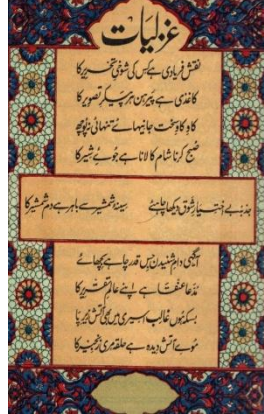 غزلیات
نقش فریادی ہے کس کی شوخیِ تحریر کا
کاغذی ہے پیرہن ہر پیکرِ تصویر کا
کاوکاوِ سخت جانیہائے تنہائی نہ پوچھ
صبح کرنا شام کا لانا ہے جوئے شیر کا
جذبۂ بے اختیارِ شوق دیکھا چاہئے سینۂ شمشیر سے باہر ہے دم شمشیر کا
آگہی دامِ شنیدن جس قدر چاہے بچھائے
مدعا عنقا ہے اپنے عالمِ تقریر کا
بسکہ ہوں غالب اسیری میں بھی آتش زیرِ پا
موئے آتش دیدہ ہے حلقہ مری زنجیر کا